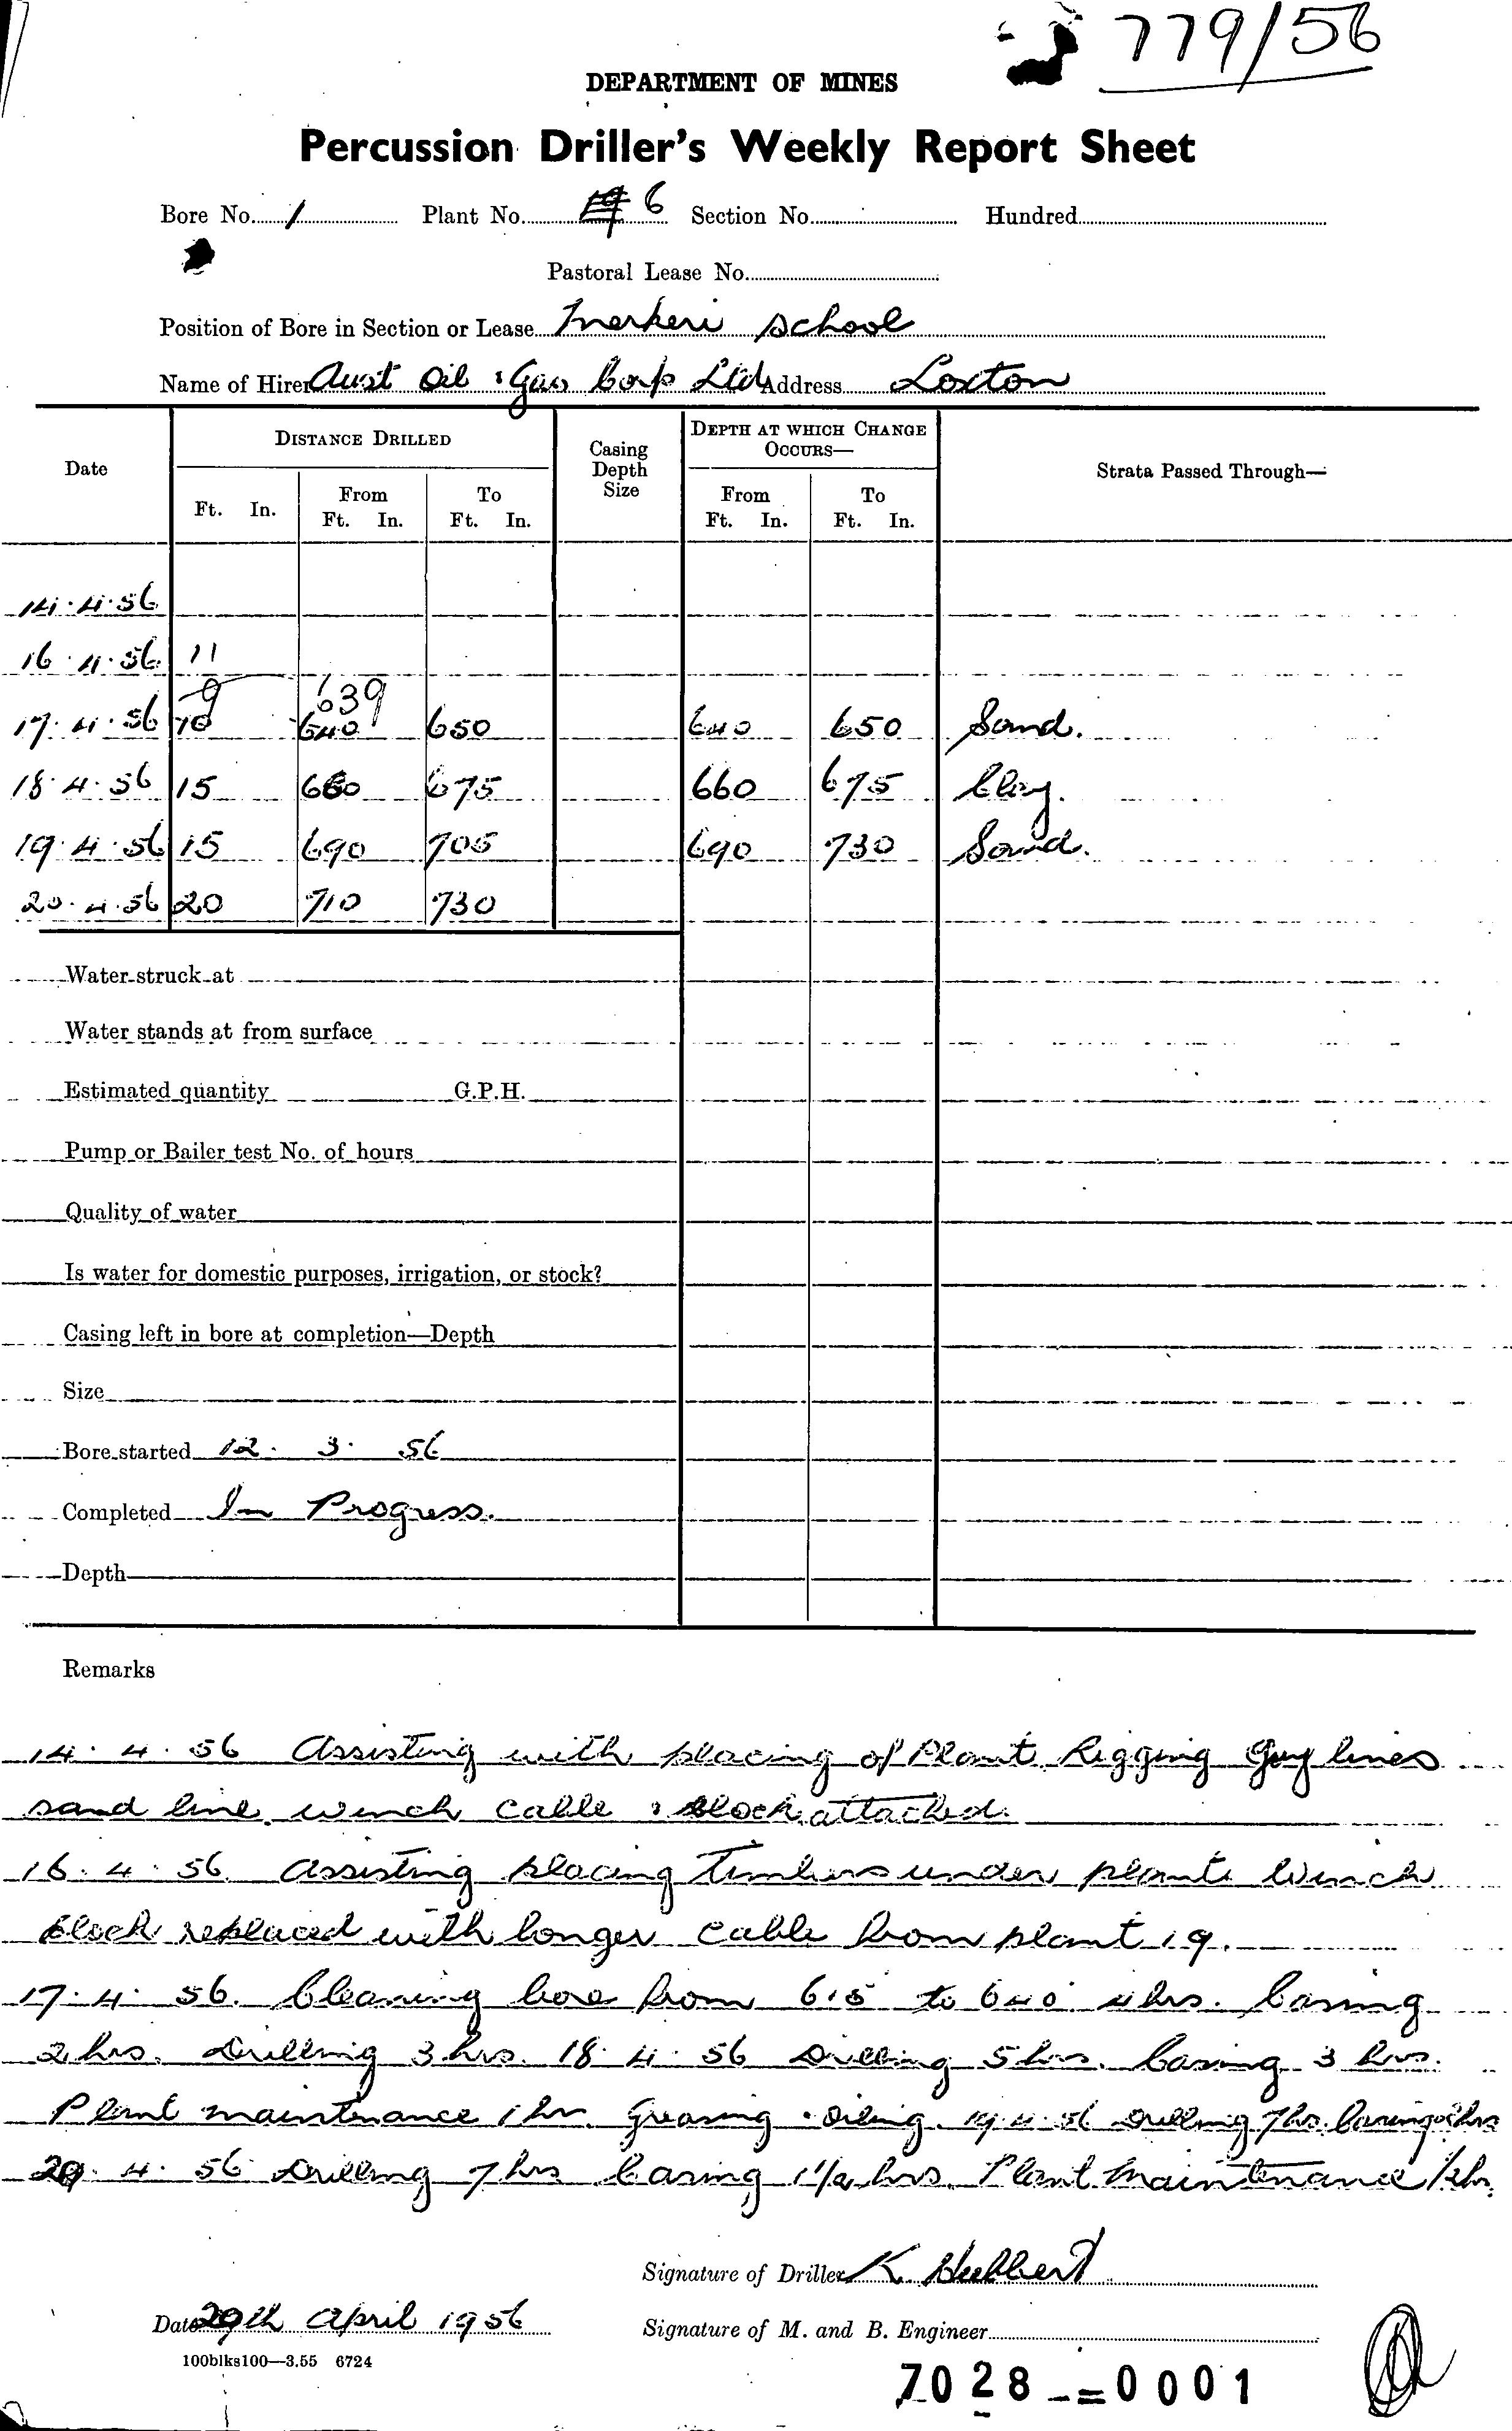 779/56
DEPARTMENT OF MINES
Percussion Driller's Weekly Report Sheet
Bore No. 1 Plant No. 6 Section No. Hundred
Pastoral Lease No.
Position of Bore in Section or Lease School
Name of Hirer Aust Oil & Gas Corp Ltd Address Loxton
Date DISTANCE DRILLED Casing Depth Size DEPTH AT WHICH CHANGE OCCURS— Strata Passed Through—
Ft. In. From Ft. In. To Ft. In. From Ft. In. To Ft. In.
14.4.56
16.4.56 11
9 639
17.4.56 10 640 650 640 650 Sand.
18.4.56 15 660 675 660 675 Clay.
19.4.56 15 690 705 690 730 Sand.
20.4.56 20 710 730
Water struck at
Water stands at from surface
Estimated quantity G.P.H.
Pump or Bailer test No. of hours
Quality of water
Is water for domestic purposes, irrigation, or stock?
Casing left in bore at completion—Depth
Size
Bore started 12. 3. 56
Completed In Progress.
Depth
Remarks
14.4.56 Assisting with placing of Plant. Rigging Guy lines
sand line winch cable & block attached.
16.4.56. Assisting placing timbers under plant. Winch
block replaced with longer cable from plant 19.
17.4.56. Cleaning bore from 615 to 640 4 hrs. Casing
2 hrs. Drilling 3 hrs. 18.4.56 Drilling 5 hrs. Casing 3 hrs.
Plant maintenance 1 hr. Greasing & oiling. 19.4.56 Drilling 7 hrs. Casing 2 hrs
20.4.56 Drilling 7 hrs Casing 1 1/2 hrs. Plant Maintenance 1/2 hr.
Signature of Driller K. Hubbert
Date 20th April 1956 Signature of M. and B. Engineer
100blks100—3.55 6724
7028-=0001